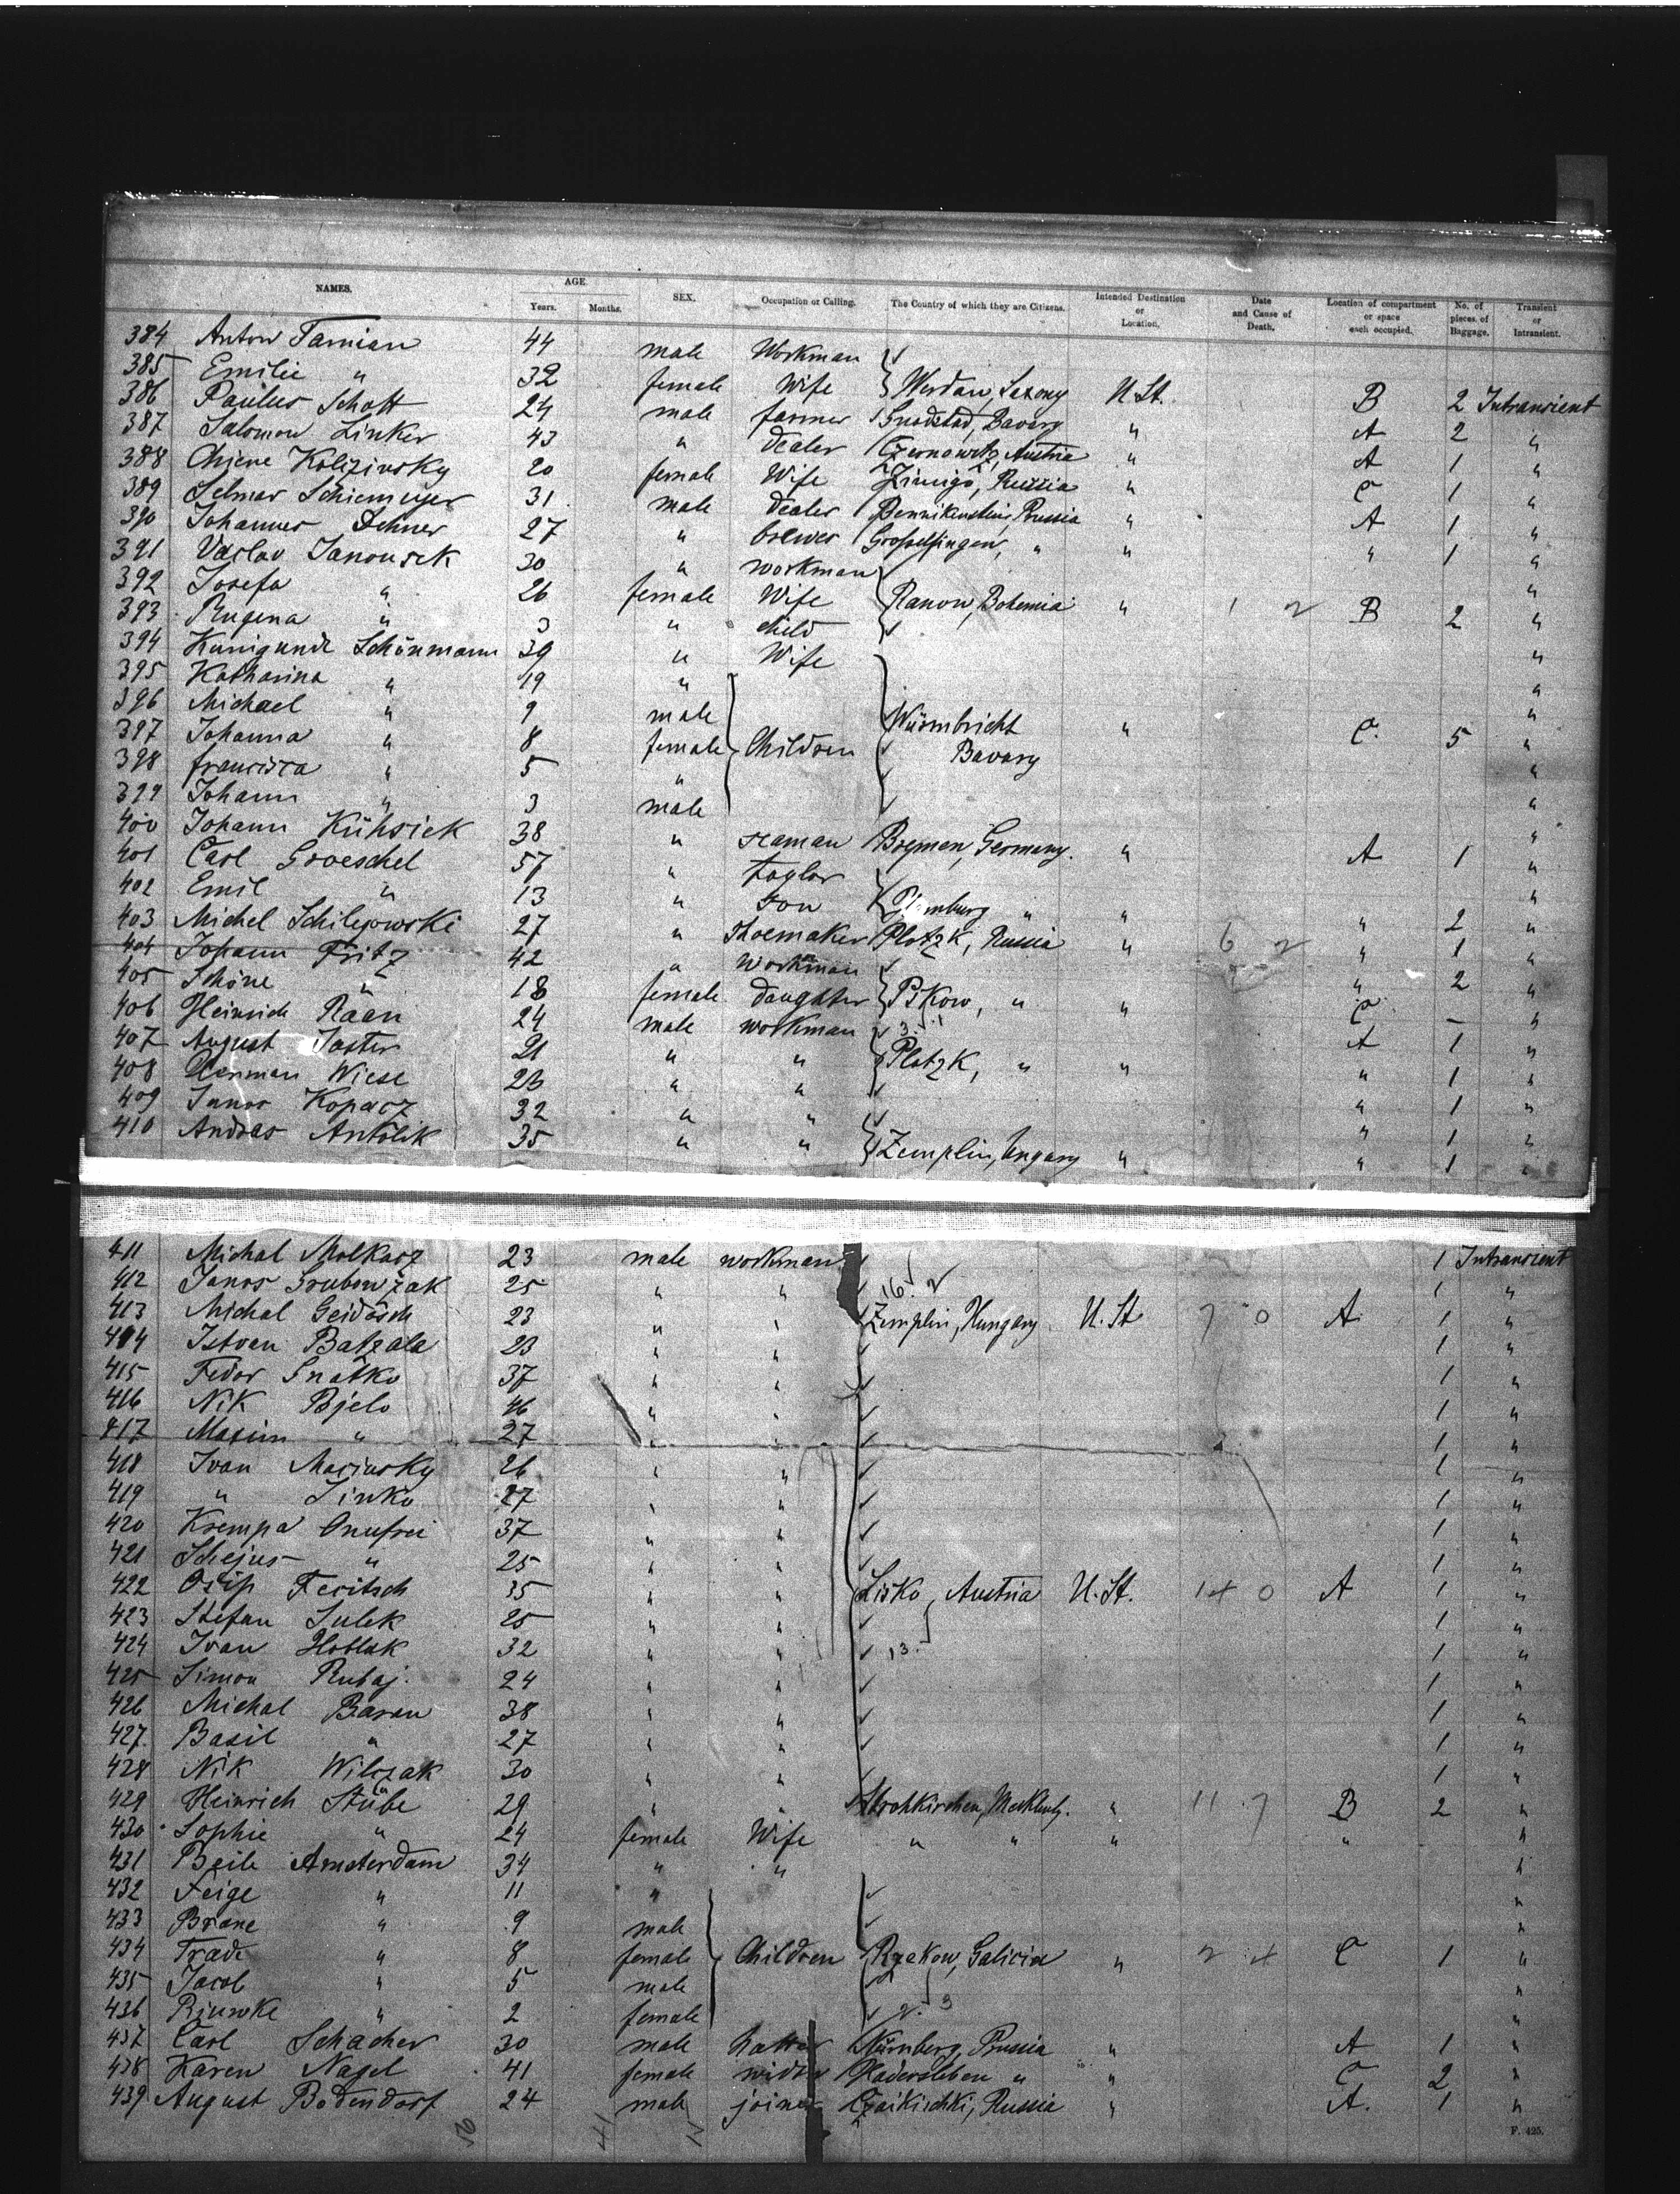 NAMES. AGE. SEX. Occupation or Calling. The Country of which they are Citizens. Intended Destination or Location. Date and Cause of Death. Location of compartment or space each occupied. No. of pieces of Baggage. Transient or Intransient.
Years. Months.
384 Anton Tamian 44 male Workman
385 Emilie " 32 female Wife Werdau, Saxony U. St. B 2 Intransient
386 Paulus Schott 24 male farmer Bavary " A 2 "
387 Salomon Linker 43 " dealer Czernowitz, Austria " A 1 "
388 Chiene Kolizinsky 20 female Wife Russia " C 1 "
389 Selmar Schiemeyer 31 male dealer Bennikenstein, Prussia " A 1 "
390 Johannes Dehner 27 " brewer Grosselfingen, " " " 1 "
391 Vaclav Janousek 30 " workman "
392 Josefa " 26 female Wife Ranow, Bohemia " 1 2 B 2 "
393 Rugena " 3 " child "
394 Kunigunde Schönmann 39 " Wife "
395 Katharina " 19 " "
396 Michael " 9 male Würmbricht " C. 5 "
397 Johanna " 8 female Children Bavary "
398 francisca " 5 " "
399 Johann " 3 male "
400 Johann Kühsiek 38 " seaman Bremen, Germany. " A 1 "
401 Carl Groeschel 57 " taylor "
402 Emil " 13 " son " " " 2 "
403 Michel Schilejowski 27 " Shoemaker Plotzk, Russia " 6 2 " 1 "
404 Johann Fritz 42 " Workman " 2 "
405 Schöne " 18 female daughter Piskow, " " C "
406 Heinrich Raan 24 male workman 3. 1 A 1 "
407 August Jaster 21 " " Plotzk, " " " 1 "
408 Herman Wiese 26 " " " 1 "
409 Janos Kopacz 32 " " " 1 "
410 Andras Antolik 35 " " Zemplin, Ungary " " 1 "
411 Michal Molkacz 23 male workman 1 Intransient
412 Janos Grubowzak 25 " " 16. 2 1 "
413 Michal Geidosch 23 " " Zemplin, Hungary. U. St 7 0 A 1 "
414 Istvan Batzala 23 " " 1 "
415 Fedor Snatko 37 " " 1 "
416 Nik Bjelo 46 " " 1 "
417 Maxim " 27 " " 1 "
418 Ivan Macinsky 26 " " 1 "
419 " Sinko 27 " " 1 "
420 Krempa Onufrei 37 " " 1 "
421 Schejus " 25 " " 1 "
422 Osip Feritsch 35 " " Lisko, Austria U. St. 14 0 A 1 "
423 Stefan Sulek 25 " " 1 "
424 Ivan Hoblak 32 " " 13. 1 "
425 Simon Rubaj. 24 " " 1 "
426 Michal Baran 38 " " 1 "
427. Basil " 27 " " 1 "
428 Nik Wilczak 30 " " 1 "
429 Heinrich Stübe 29 " " Strohkirchen, Mecklenbg. " 11 7 B 2 "
430 Sophie " 24 female Wife " " " " "
431 Beile Amsterdam 34 " " "
432 Feige " 11 " "
433 Brane " 9 male "
434 Trade " 8 female Children Rzekow, Galicia " 2 4 C 1 "
435 Jacob " 5 male "
436 Riwke " 2 female 2. 3 "
437 Carl Schacher 30 male hatter Nürnberg, Prussia " A 1 "
438 Karen Nagel 41 female widow Hadersleben " " C 2 "
439 August Bodendorf 24 male joiner Czaikischki, Russia " A. 1 "
F. 425.